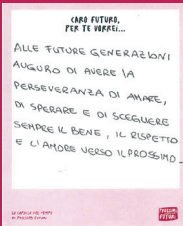 CARO FUTURO,
PER TE VORREI...
ALLE FUTURE GENERAZIONI
AUGURO DI AVERE LA
PERSEVERANZA DI AMARE,
DI SPERARE E DI SCEGLIERE
SEMPRE IL BENE, IL RISPETTO
E L'AMORE VERSO IL PROSSIMO.
LA CAPSULA DEL TEMPO